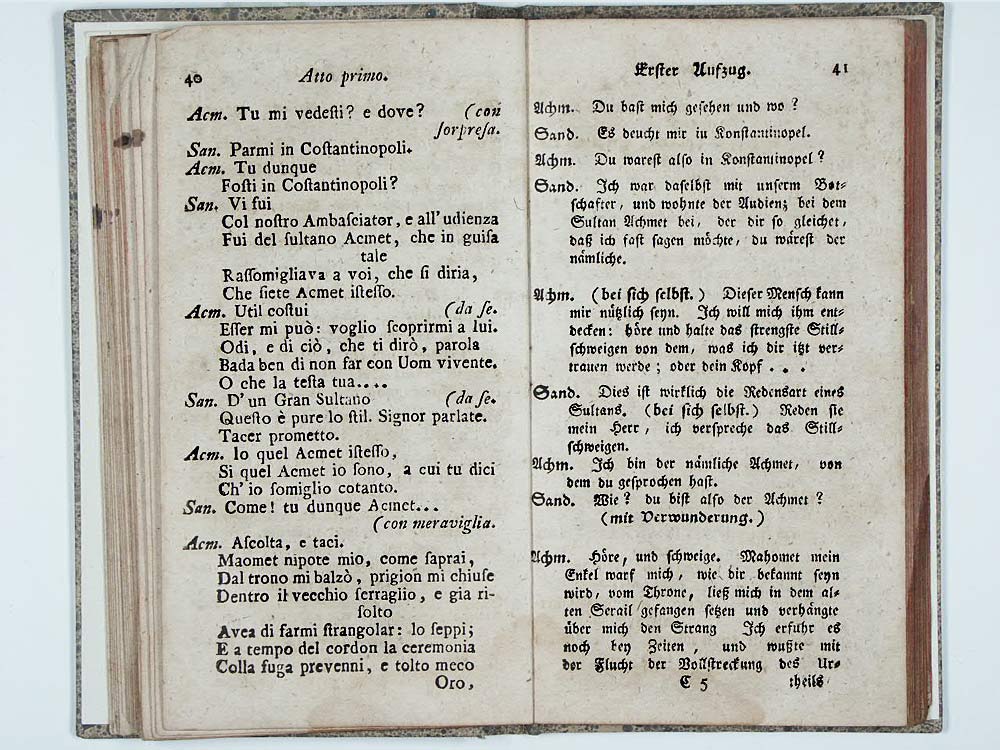 40 Atto primo.
Acm. Tu mi vedeſti? e dove? (con
ſorpreſa.
San. Parmi in Coſtantinopoli.
Acm. Tu dunque
Foſti in Coſtantinopoli?
San. Vi fui
Col noſtro Ambaſciator, e all'udienza
Fui del ſultano Acmet, che in guiſa
tale
Raſſomigliava a voi, che ſi diria,
Che ſiete Acmet iſteſſo.
Acm. Util coſtui (da ſe.
Eſſer mi può: voglio ſcoprirmi a lui.
Odi, e di ciò, che ti dirò, parola
Bada ben di non far con Uom vivente.
O che la teſta tua....
San. D'un Gran Sultano (da ſe.
Queſto è pure lo ſtil. Signor parlate.
Tacer prometto.
Acm. Io quel Acmet iſteſſo,
Si quel Acmet io ſono, a cui tu dici
Ch' io ſomiglio cotanto.
San. Come! tu dunque Acmet...
(con meraviglia.
Acm. Aſcolta, e taci.
Maomet nipote mio, come ſaprai,
Dal trono mi balzò, prigion mi chiuſe
Dentro il vecchio ſerraglio, e gia ri-
ſolto
Avea di farmi ſtrangolar: lo ſeppi;
E a tempo del cordon la ceremonia
Colla fuga prevenni, e tolto meco
Oro,
Erſter Aufzug. 41
Achm. Du haſt mich geſehen und wo?
Sand. Es deucht mir in Konſtantinopel.
Achm. Du wareſt alſo in Konſtantinopel?
Sand. Ich war daſelbſt mit unſerm Bot-
ſchafter, und wohnte der Audienz bei dem
Sultan Achmet bei, der dir ſo gleichet,
daß ich faſt ſagen möchte, du wäreſt der
nämliche.
Achm. (bei ſich ſelbſt.) Dieſer Menſch kann
mir nützlich ſeyn. Ich will mich ihm ent-
decken: höre und halte das ſtrengſte Still-
ſchweigen von dem, was ich dir itzt ver-
trauen werde; oder dein Kopf . . .
Sand. Dies iſt wirklich die Redensart eines
Sultans. (bei ſich ſelbſt.) Reden ſie
mein Herr, ich verſpreche das Still-
ſchweigen.
Achm. Ich bin der nämliche Achmet, von
dem du geſprochen haſt.
Sand. Wie? du biſt alſo der Achmet?
(mit Verwunderung.)
Achm. Höre, und ſchweige. Mahomet mein
Enkel warf mich, wie dir bekannt ſeyn
wird, vom Throne, ließ mich in dem al-
ten Serail gefangen ſetzen und verhängte
über mich den Strang Ich erfuhr es
noch bey Zeiten, und wußte mit
der Flucht der Vollſtreckung des Ur-
C 5 theils